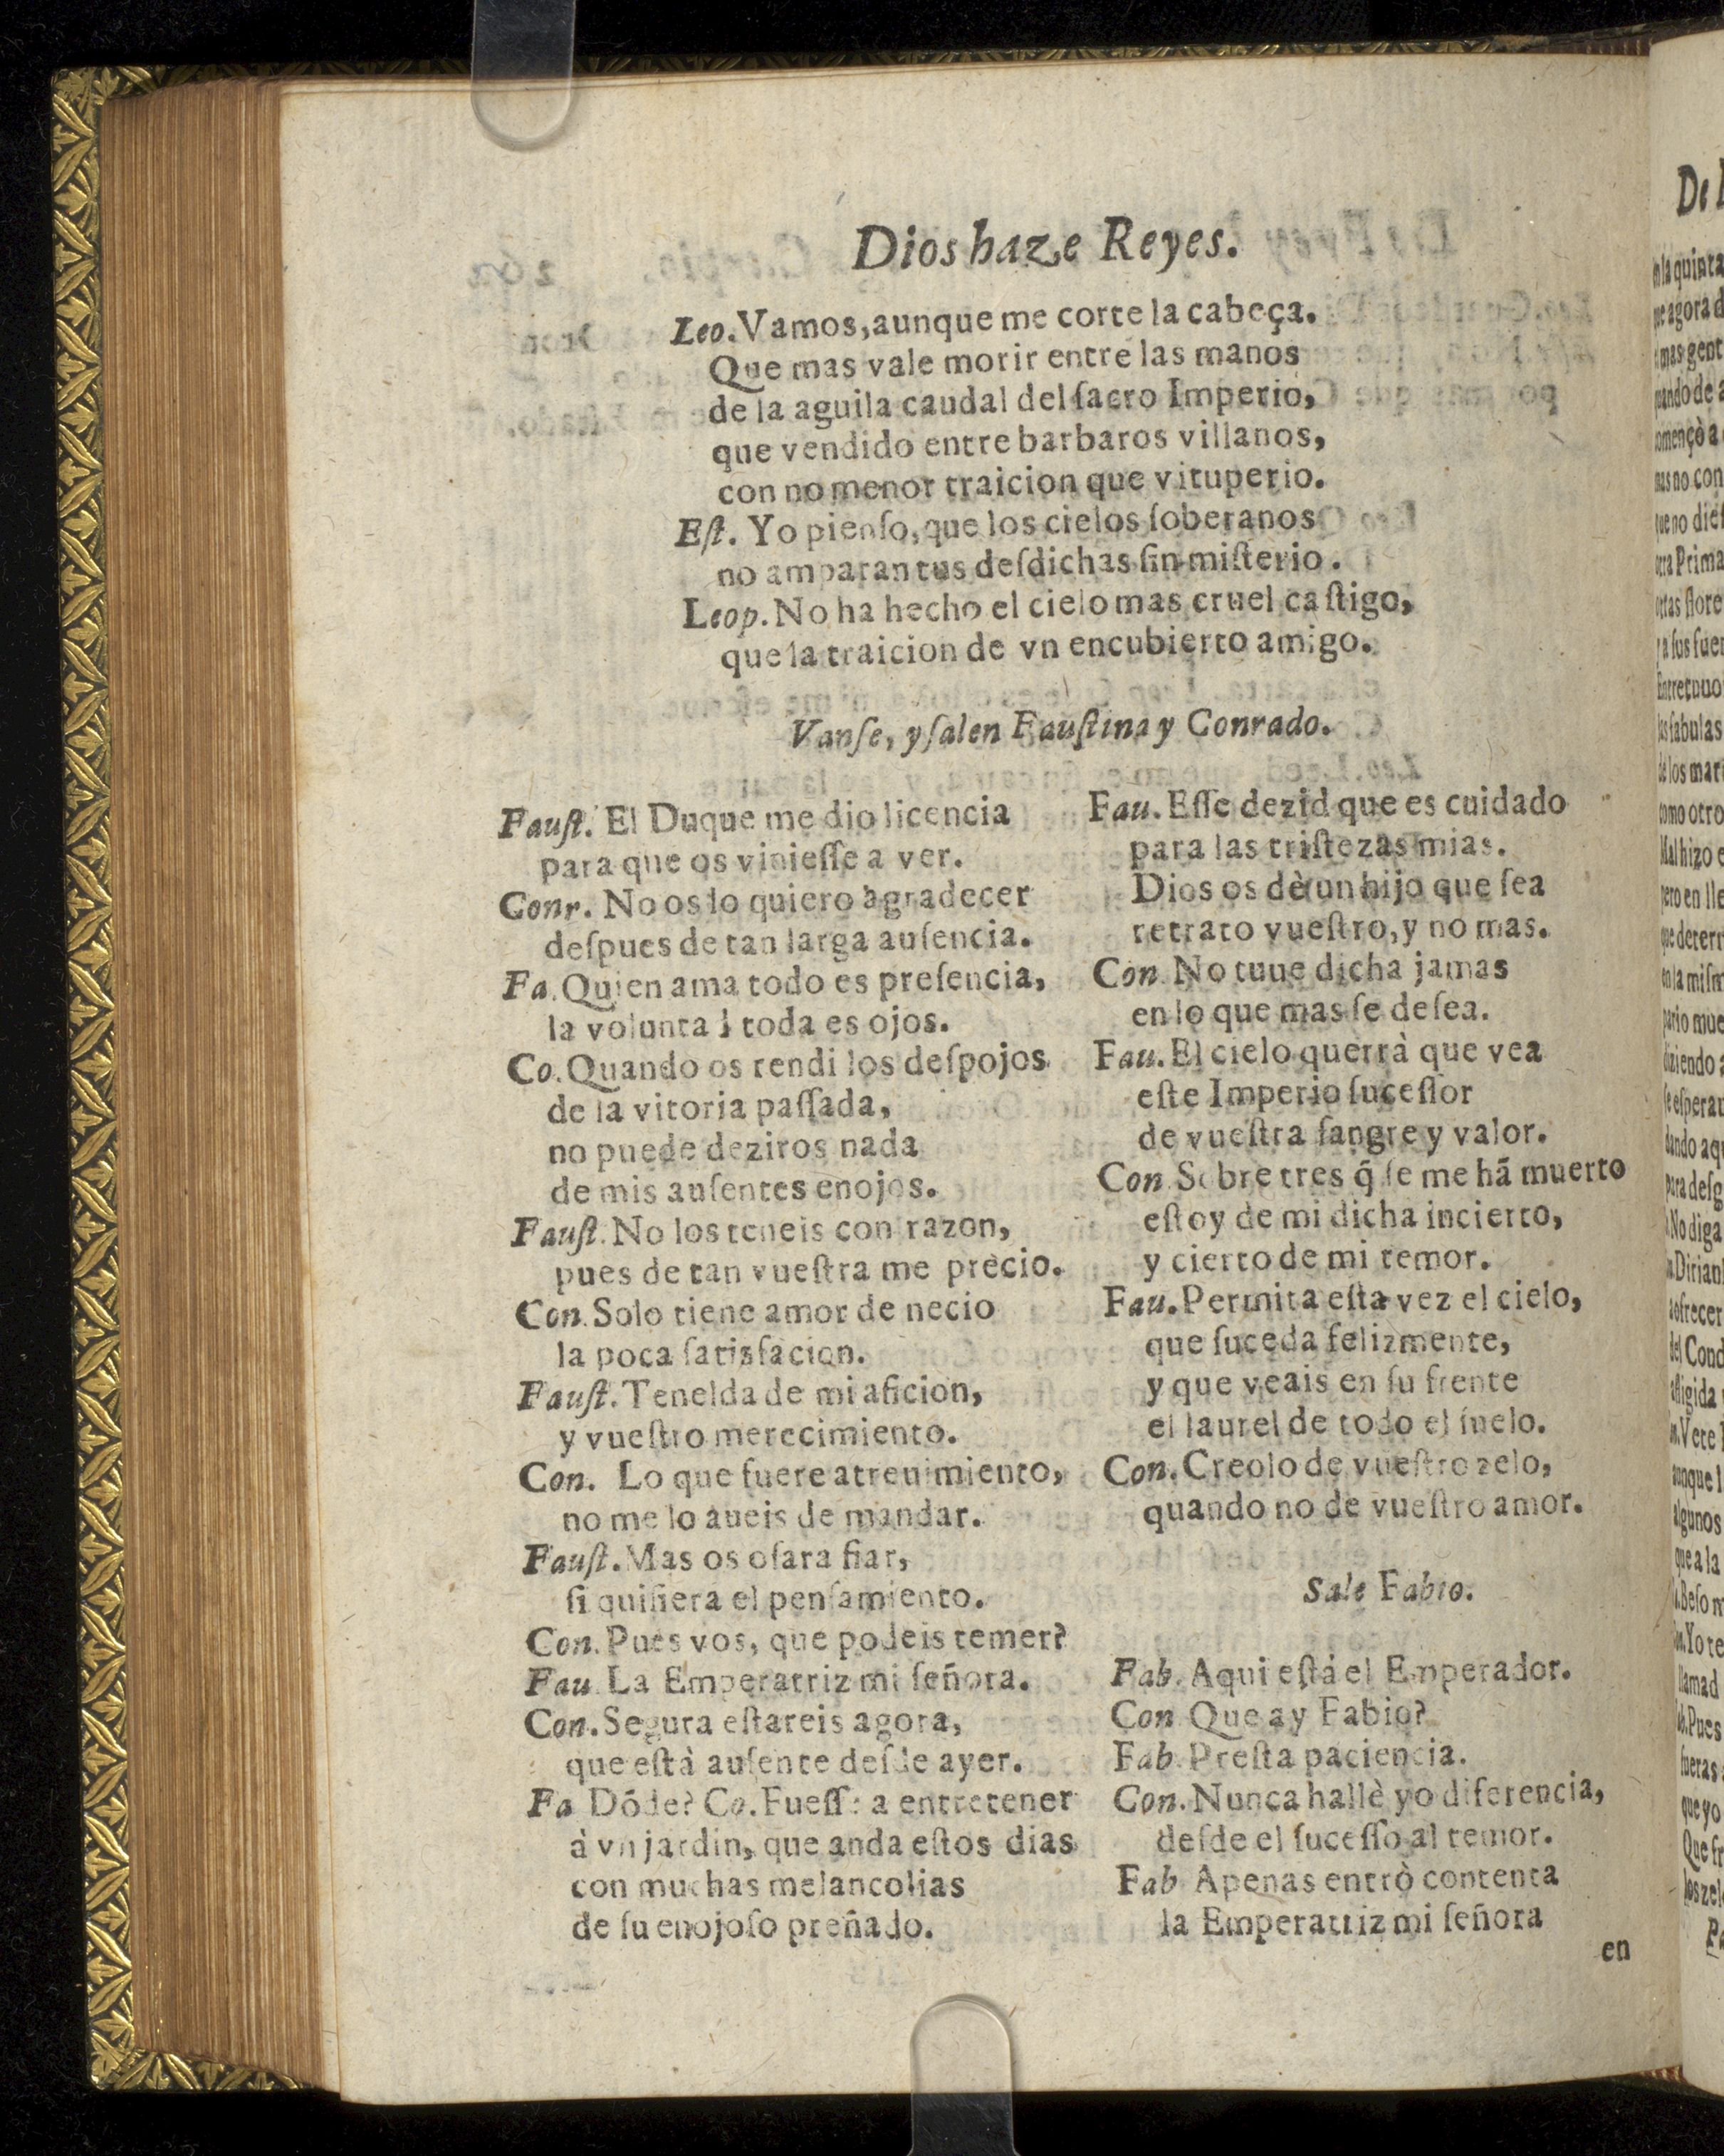 Dios haze Reyes.
Leo. Vamos, aunque me corte la cabeça.
Que mas vale morir entre las manos
de la aguila caudal del ſacro Imperio,
que vendido entre barbaros villanos,
con no menor traicion que vituperio.
Eſt. Yo pienſo, que los cielos ſoberanos
no amparan tus deſdichas ſin miſterio.
Leop. No ha hecho el cielo mas cruel caſtigo,
que la traicion de vn encubierto amigo.
Vanſe, y ſalen Fauſtina y Conrado.
Fauſt. El Duque me dio licencia
para que os vinieſſe a ver.
Conr. No os lo quiero agradecer
deſpues de tan larga auſencia.
Fa. Quien ama todo es preſencia,
la voluntad toda es ojos.
Co. Quando os rendi los deſpojos
de la vitoria paſſada,
no puede deziros nada
de mis auſentes enojos.
Fauſt. No los teneis con razon,
pues de tan vueſtra me precio.
Con. Solo tiene amor de necio
la poca ſatisfacion.
Fauſt. Tenelda de mi aficion,
y vueſtro merecimiento.
Con. Lo que fuere atreuimiento,
no me lo aueis de mandar.
Fauſt. Mas os oſara fiar,
ſi quiſiera el penſamiento.
Con. Pues vos, que podeis temer?
Fau. La Emperatriz mi ſeñora.
Con. Segura eſtareis agora,
que eſtà auſente deſde ayer.
Fa Dõde? Co. Fueſſe a entretener
à vn jardin, que anda eſtos dias
con muchas melancolias
de ſu enojoſo preñado.
Fau. Eſſe dezid que es cuidado
para las triſtezas mias.
Dios os dè un hijo que ſea
retrato vueſtro, y no mas.
Con No tuue dicha jamas
en lo que mas ſe deſea.
Fau. El cielo querrà que vea
eſte Imperio ſuceſſor
de vueſtra ſangre y valor.
Con Sobre tres q̃ ſe me hã muerto
eſtoy de mi dicha incierto,
y cierto de mi temor.
Fau. Permita eſta vez el cielo,
que ſuceda felizmente,
y que veais en ſu frente
el laurel de todo el ſuelo.
Con. Creolo de vueſtro zelo,
quando no de vueſtro amor.
Sale Fabio.
Fab. Aqui eſtá el Emperador.
Con Que ay Fabio?
Fab. Preſta paciencia.
Con. Nunca hallè yo diferencia,
deſde el ſuceſſo al temor.
Fab Apenas entrò contenta
la Emperatriz mi ſeñora
en